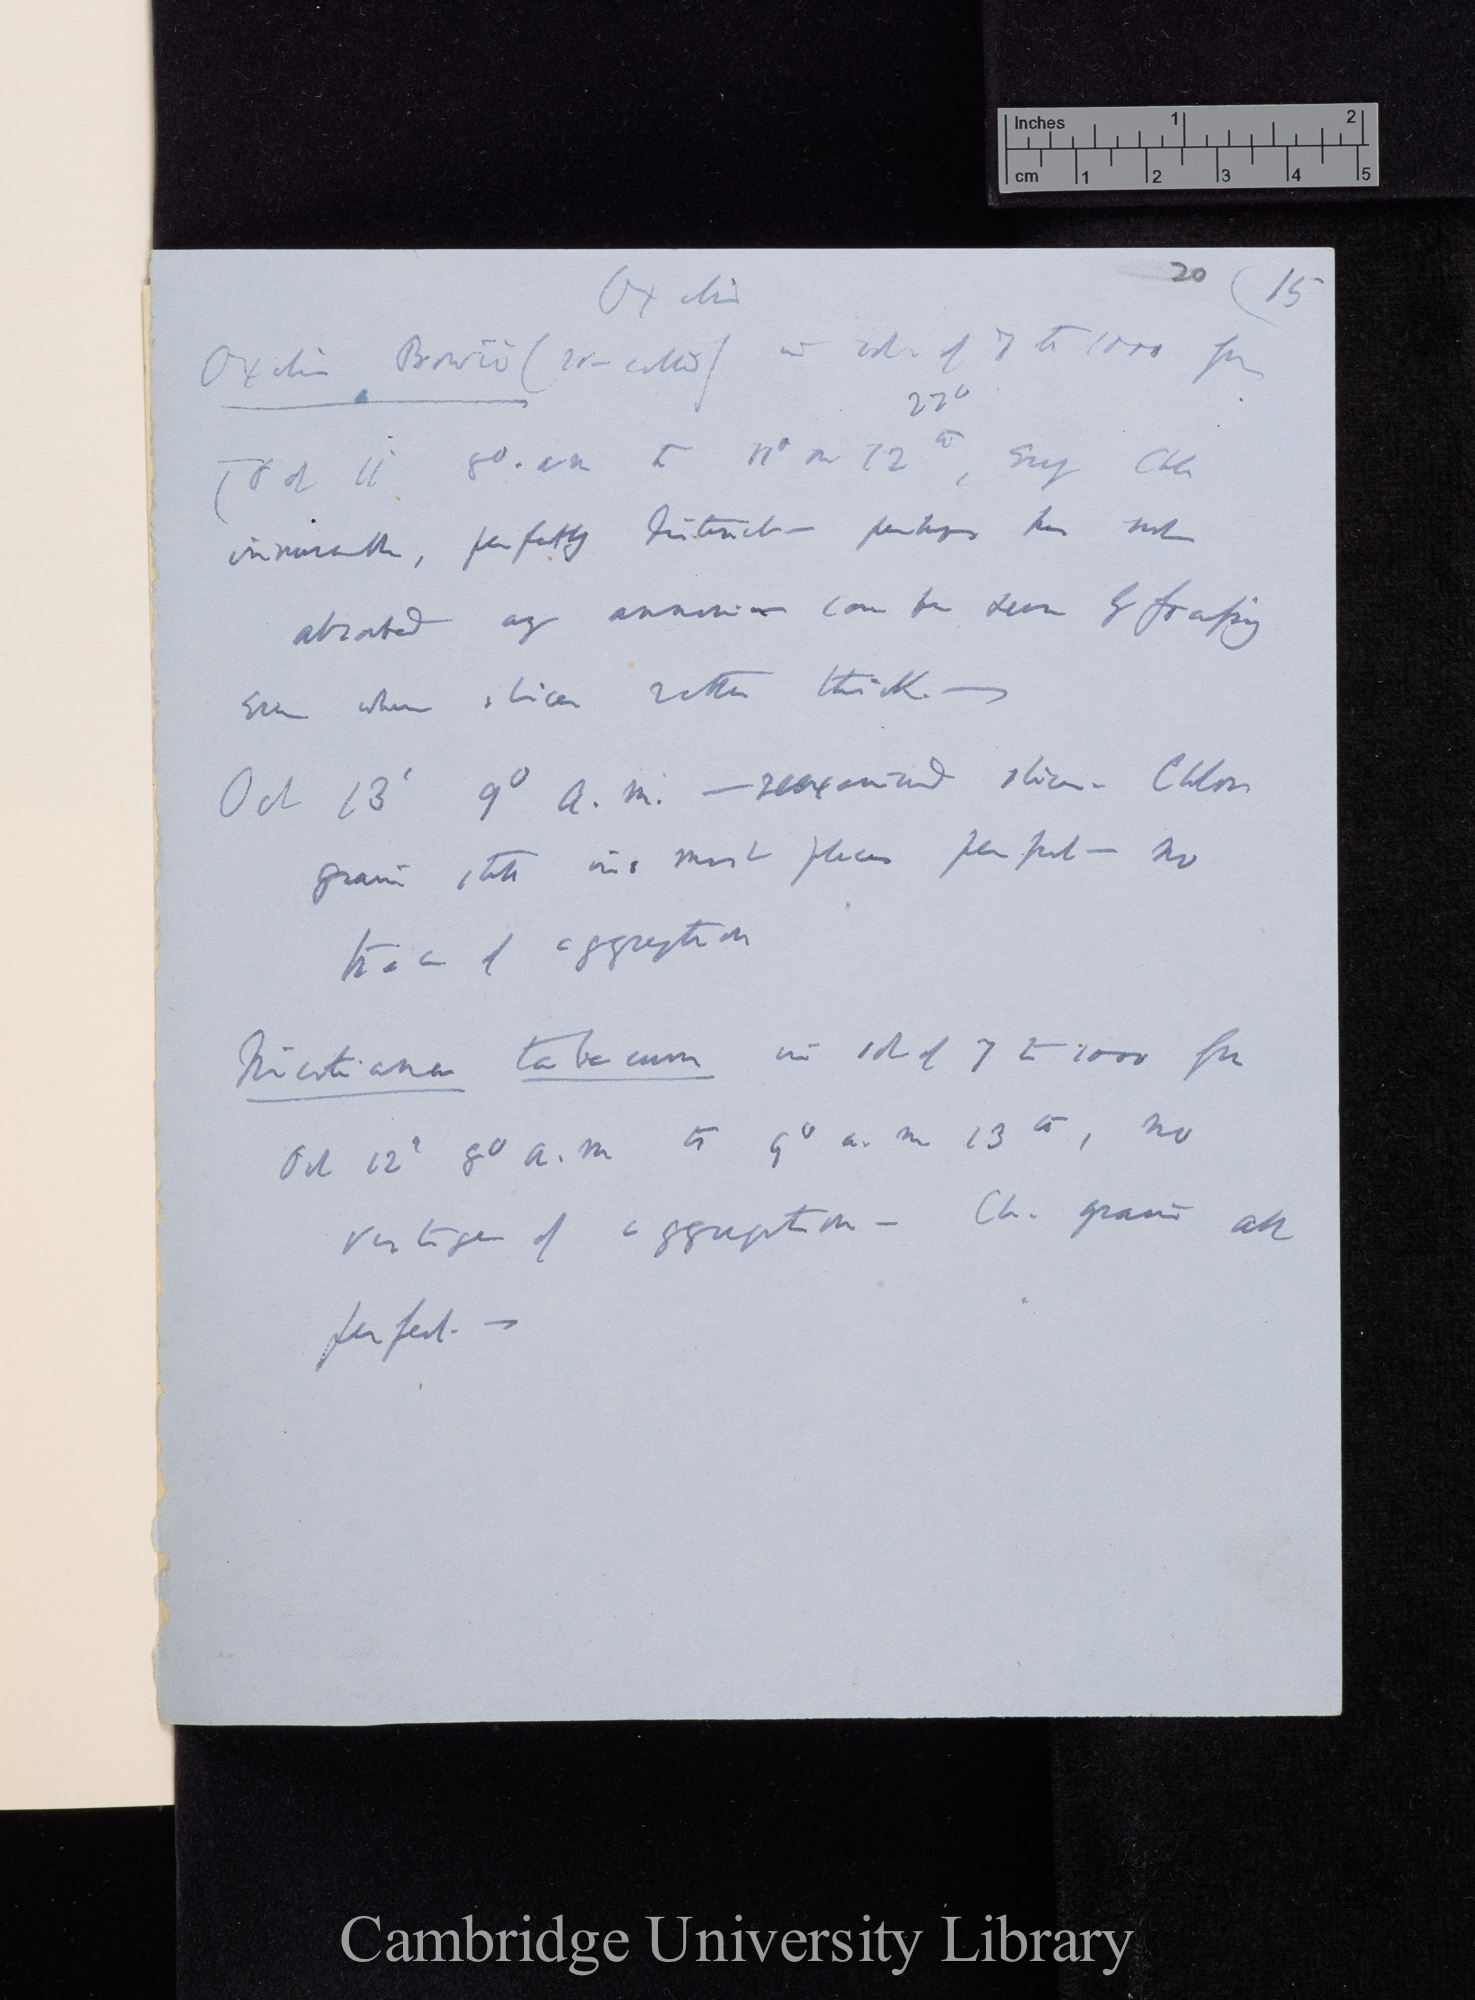 Inches 1 2
cm 1 2 3 4 5
20 (15
Oxalis
Oxalis Bowii ( ) in sol. of 7 to 1000 for
27°
Oct 11' 8° a.m to 11° on 12th, every Chl
innumerable, perfectly distinct — perhaps has not
absorbed any ammonia — can be seen by focussing
even when slices rather thick. —
Oct 13' 9° a.m. — reexamined slices. Chloro
grains still in most places perfect — no
trace of aggregation
Nicotiana tabacum in sol of 7 to 1000 for
Oct 12' 8° a.m to 9° a.m 13th, no
vestige of aggregation — Ch. grains all
perfect. —
Cambridge University Library